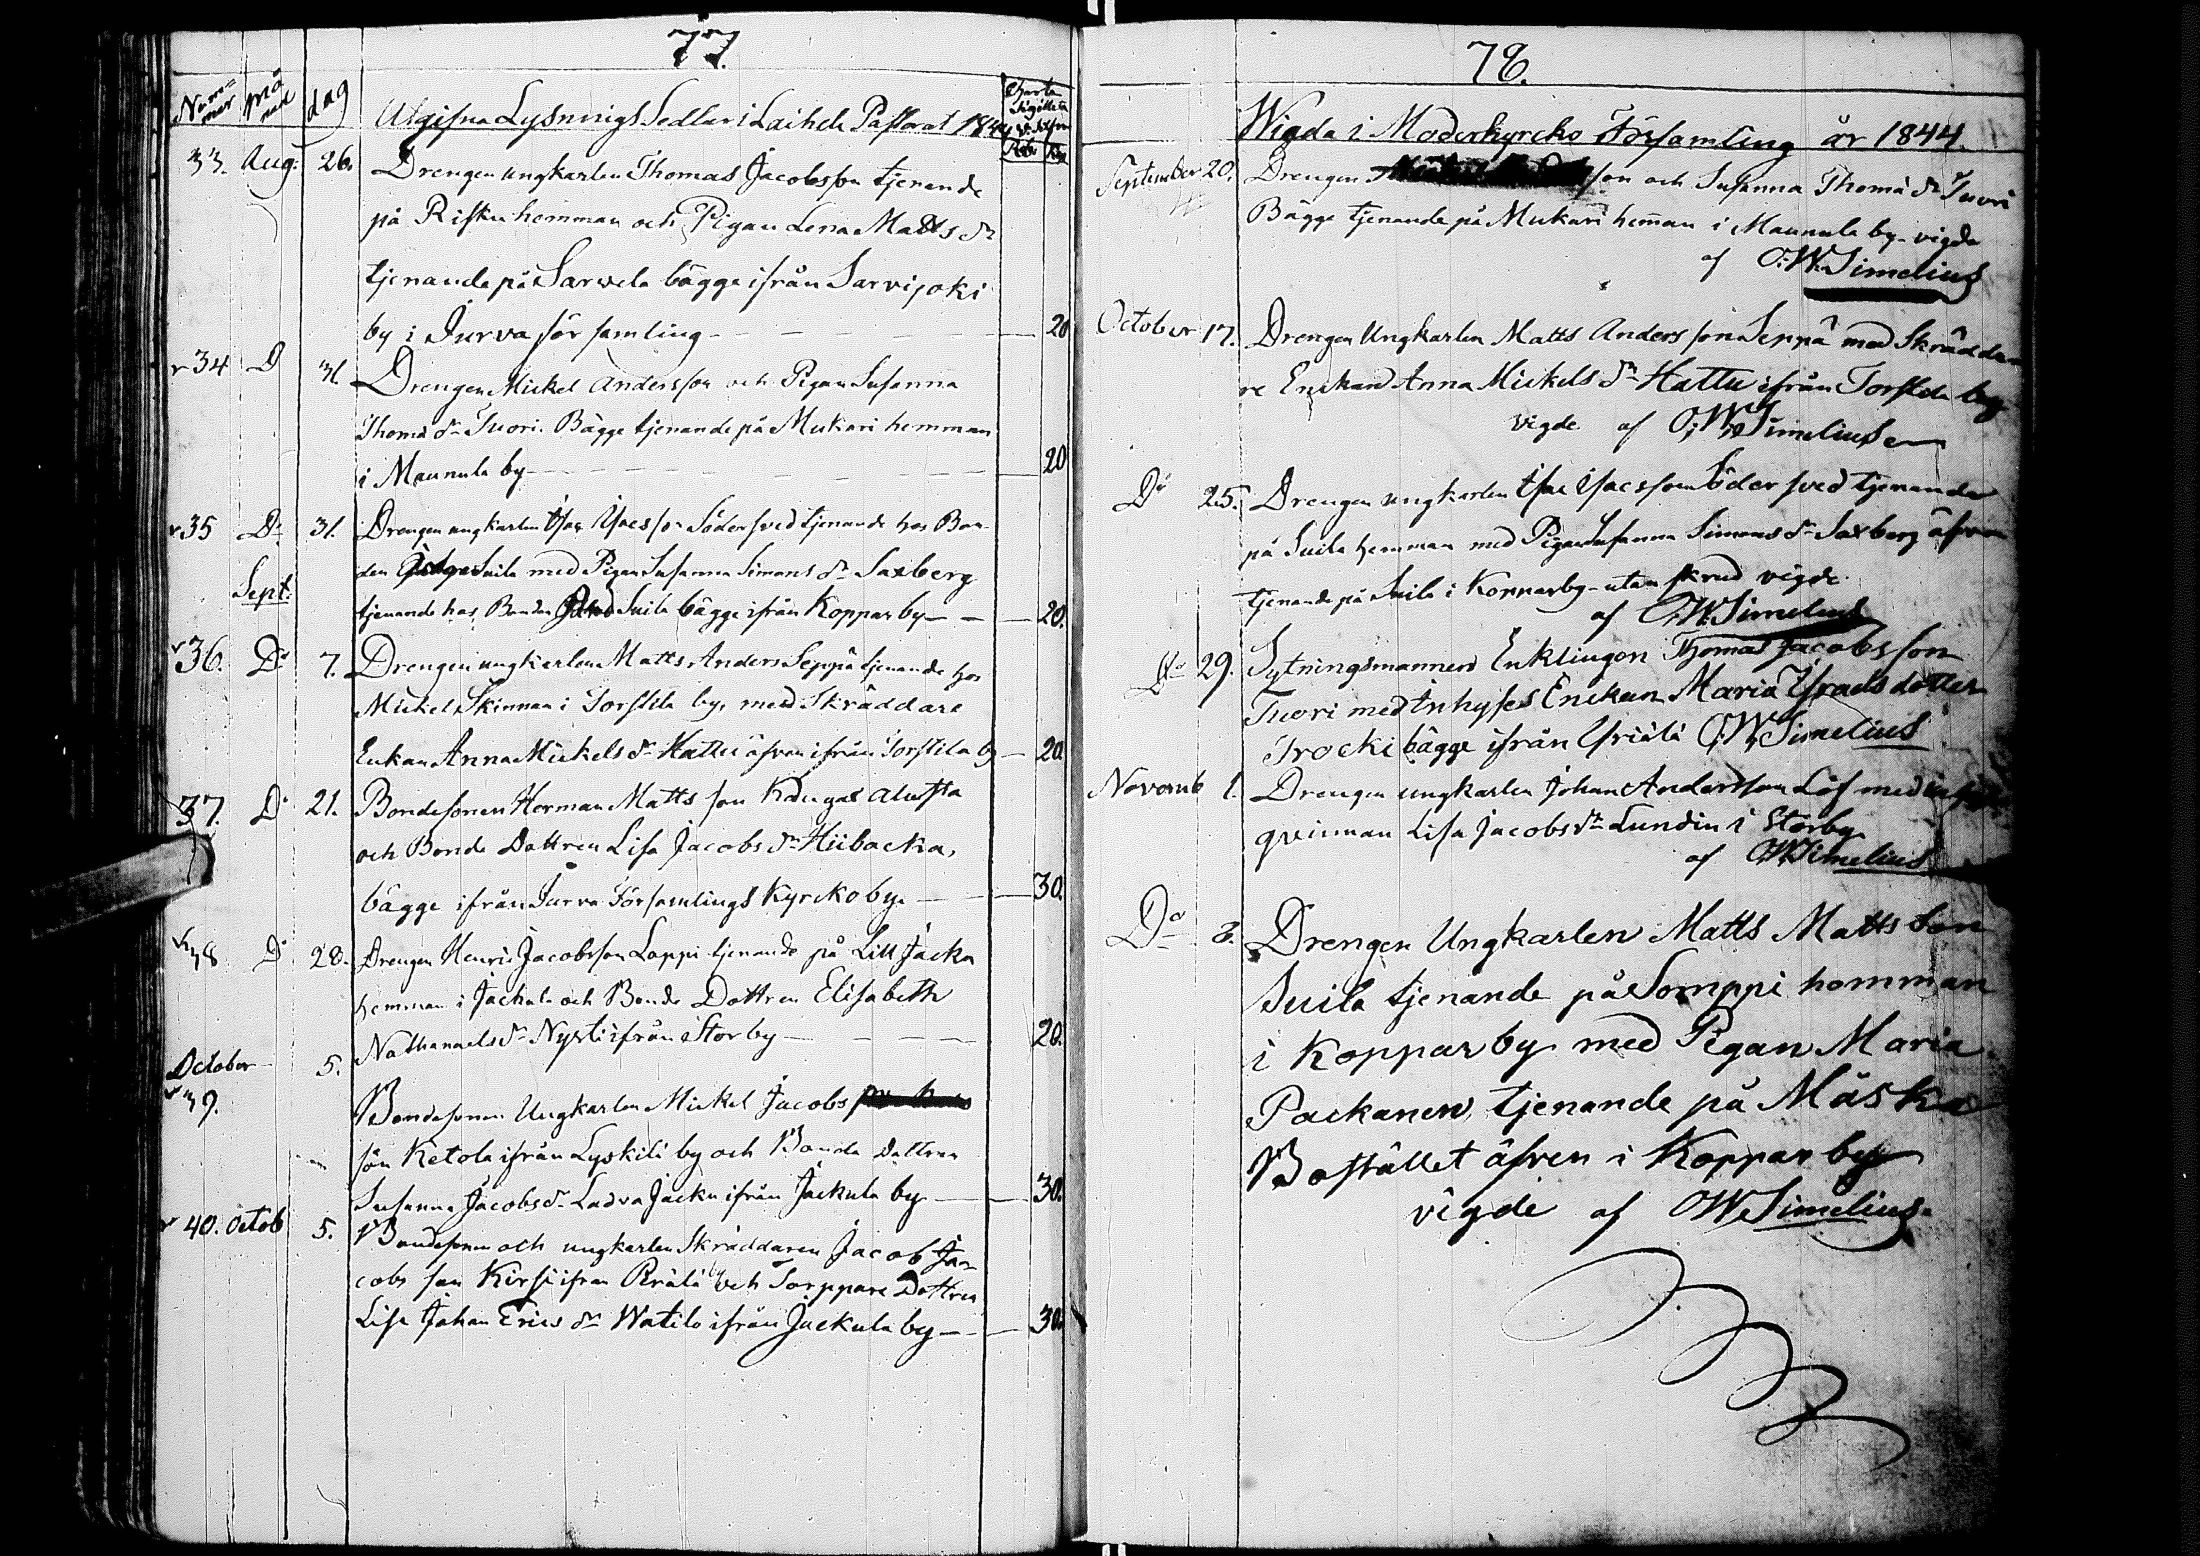 77.
Num-
mer må-
nad dag Utgifna Lysnings Sedlar i Laihela Pastorat 1844 Charta
Sigillata
Rub. Kop.
33. Aug. 26. Drengen ungkarlen Thomas Jacobsson tjenande
på Risku hemman och Pigan Lena Matts dr
tjenande på Sarvela bägge ifrån Sarvijoki
by i Jurva församling — — — 20
34 D 31. Drengen Mickel Andersson och Pigan Susanna
Thomä dr Tuori. Bägge tjenande på Mukari hemman
i Maunula by — — — 20
35 Do 31. Drengen ungkarlen Isac Isacsson Södersved tjenande hos Bon-
den Suila med Pigan Susanna Simons dr Saxberg
Sept.
tjenande hos Bonden Suila bägge ifrån Kopparby — — 20.
36. Do 7. Drengen ungkarlen Matts Anders Seppä tjenande hos
Mickel Skinnari i Torstila by, med Skräddare
Enkan Anna Mickels dr Hattu äfven ifrån Torstila by — 20.
37. Do 21. Bondesonen Herman Matts son Kangas alusta
och Bonde Dottren Lisa Jacobs dr Hiibacka,
bägge ifrån Jurva Församlings Kyrckoby. — — 30.
38 Do 28. Drengen Henric Jacobsson Loppi tjenande på Lill Jacka
hemman i Jackula och Bonde Dottren Elisabeth
Nathanaels dr Nyrti ifrån Storby — — — 20.
October 5.
39.
Bondesonen Ungkarlen Mickel Jacobs
son Ketola ifrån Lyskilä by och Bonde Dottren
Susanna Jacobs dr Ladva Jacku ifrån Jackula by — — 30.
40. Octob 5. Bondesonen och ungkarlen Skräddaren Jacob Ja-
cobs son Kirsi ifrån by och Torppare Dottren
Lisa Johan Erics dr Watilo ifrån Jackula by — — 30.
78.
Wigda i Moderkyrcko Församling år 1844.
September 20. Drengen son och Susanna Thomä dr Tuori
Bägge tjenande på Mukari hem̄an i Maunula by - vigde
af O.W. Simelius
October 17. Drengen Ungkarlen Matts Andersson Seppä med Skrädda-
re Enckan Anna Mickels dr Hattu ifrån Torstila by
vigde af O.W. Simelius
Do 25. Drengen ungkarlen Isac Isacsson Södersved tjenande
på Suila hemman med Pigan Susanna Simons dr Saxberg äfven
tjenande på Suila i Kopparby - utan skrud vigde
af O.W. Simelius
Do 29. Sytningsmannen Enklingen Thomas Jacobsson
Tuori med Inhyses Enckan Maria Israels dotter
Trocki bägge ifrån O.W. Simelius
Novemb 1. Drengen ungkarlen Johan Andersson Löf med
qvinnan Lisa Jacobs dr Lundin i Storby
af O.W. Simelius
Do 3. Drengen Ungkarlen Matts Matts Son
Suila tjenande på Somppi hemman
i Kopparby med Pigan Maria
Packanen, tjenande på Måska
Bostället äfven i Kopparby
vigde af O.W. Simelius.